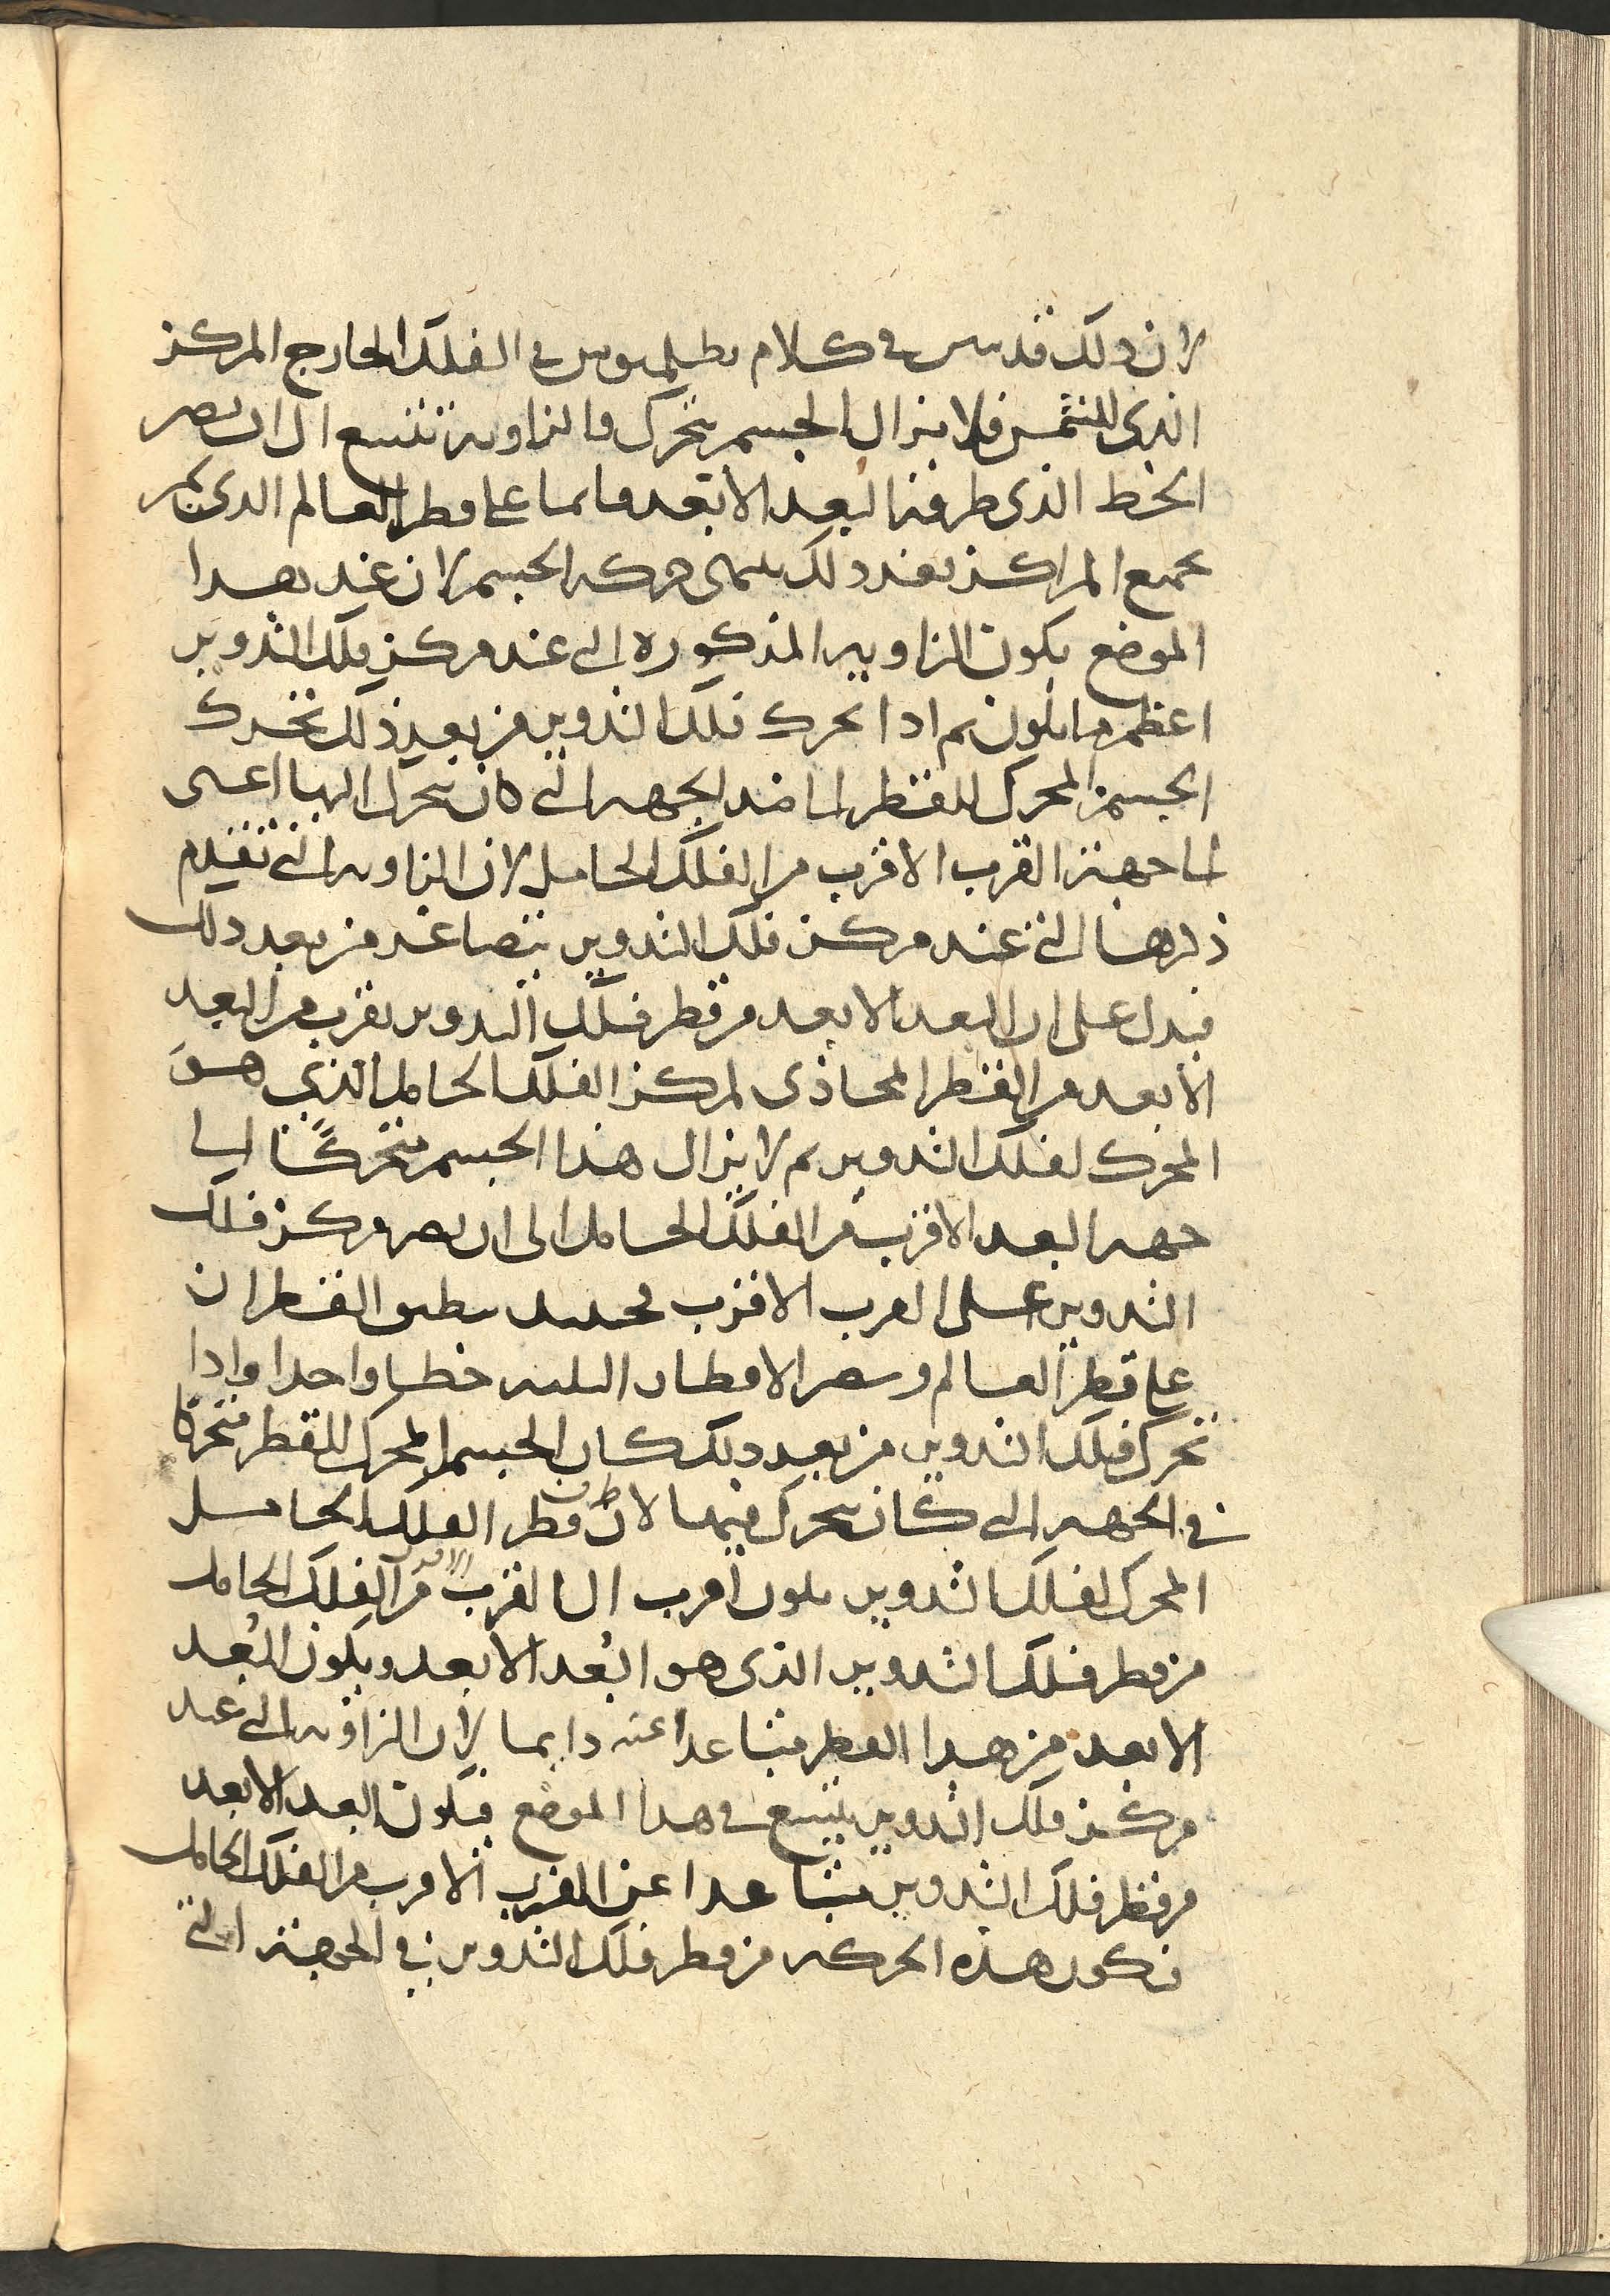 لان ذلك قد تبين في كلام بطلميوس في الفلك الخارج المركز
الذي للشمس فلا يزال الجسم يتحرك والزاوية تتسع الى ان يصير
الخط الذي طرفه البعد الابعد قائما على قطر العالم الذي يمر
بجميع المراكز فعند ذلك تنتهى حركه الجسم لان عند هذا
الموضع يكون الزاويه المذكوره التي عند مركز فلك التدوير
اعظم ما تكون ثم اذا تحرك فلك التدوير من بعد ذلك تحرك
الجسم المحرك للقطر الى ضد الجهه التي كان يتحرك اليها اعنى
الى جهة القرب الاقرب من الفلك الحامل لان الزاويه التي تقدم
ذكرها التي عند مركز فلك التدوير تتصاغر من بعد ذلك
فيدل على ان البعد الابعد من قطر فلك التدوير يقرب من البعد
الابعد من القطر المحاذى لمركز الفلك الحامل الذي هو
المحرك لفلك التدوير ثم لا يزال هذا الجسم متحركا الى
جهه البعد الاقرب من الفلك الحامل الى ان يصير مركز فلك
التدوير على القرب الاقرب فحينئذ ينطبق القطران
على قطر العالم وتصير الاقطار الثلثه خطا واحدا واذا
تحرك فلك التدوير من بعد ذلك كان الجسم المحرك للقطر متحركا
في الجهه التي كان يتحرك فيها لان طرف قطر الفلك الحامل
المحرك لفلك التدوير يكون اقرب الى القرب الاقرب من الفلك الحامل
من قطر فلك التدوير الذي هو البُعد الابعد ويكون البُعد
الابعد من هذا القطر متباعدا عنه دايما لان الزاويه التي عند
مركز فلك التدوير تتسع في هذا الموضع فيكون البعد الابعد
من قطر فلك التدوير متباعدا عن القرب الاقرب من الفلك الحامل
فتكون هذه الحركه من قطر فلك التدوير في الجهة التي